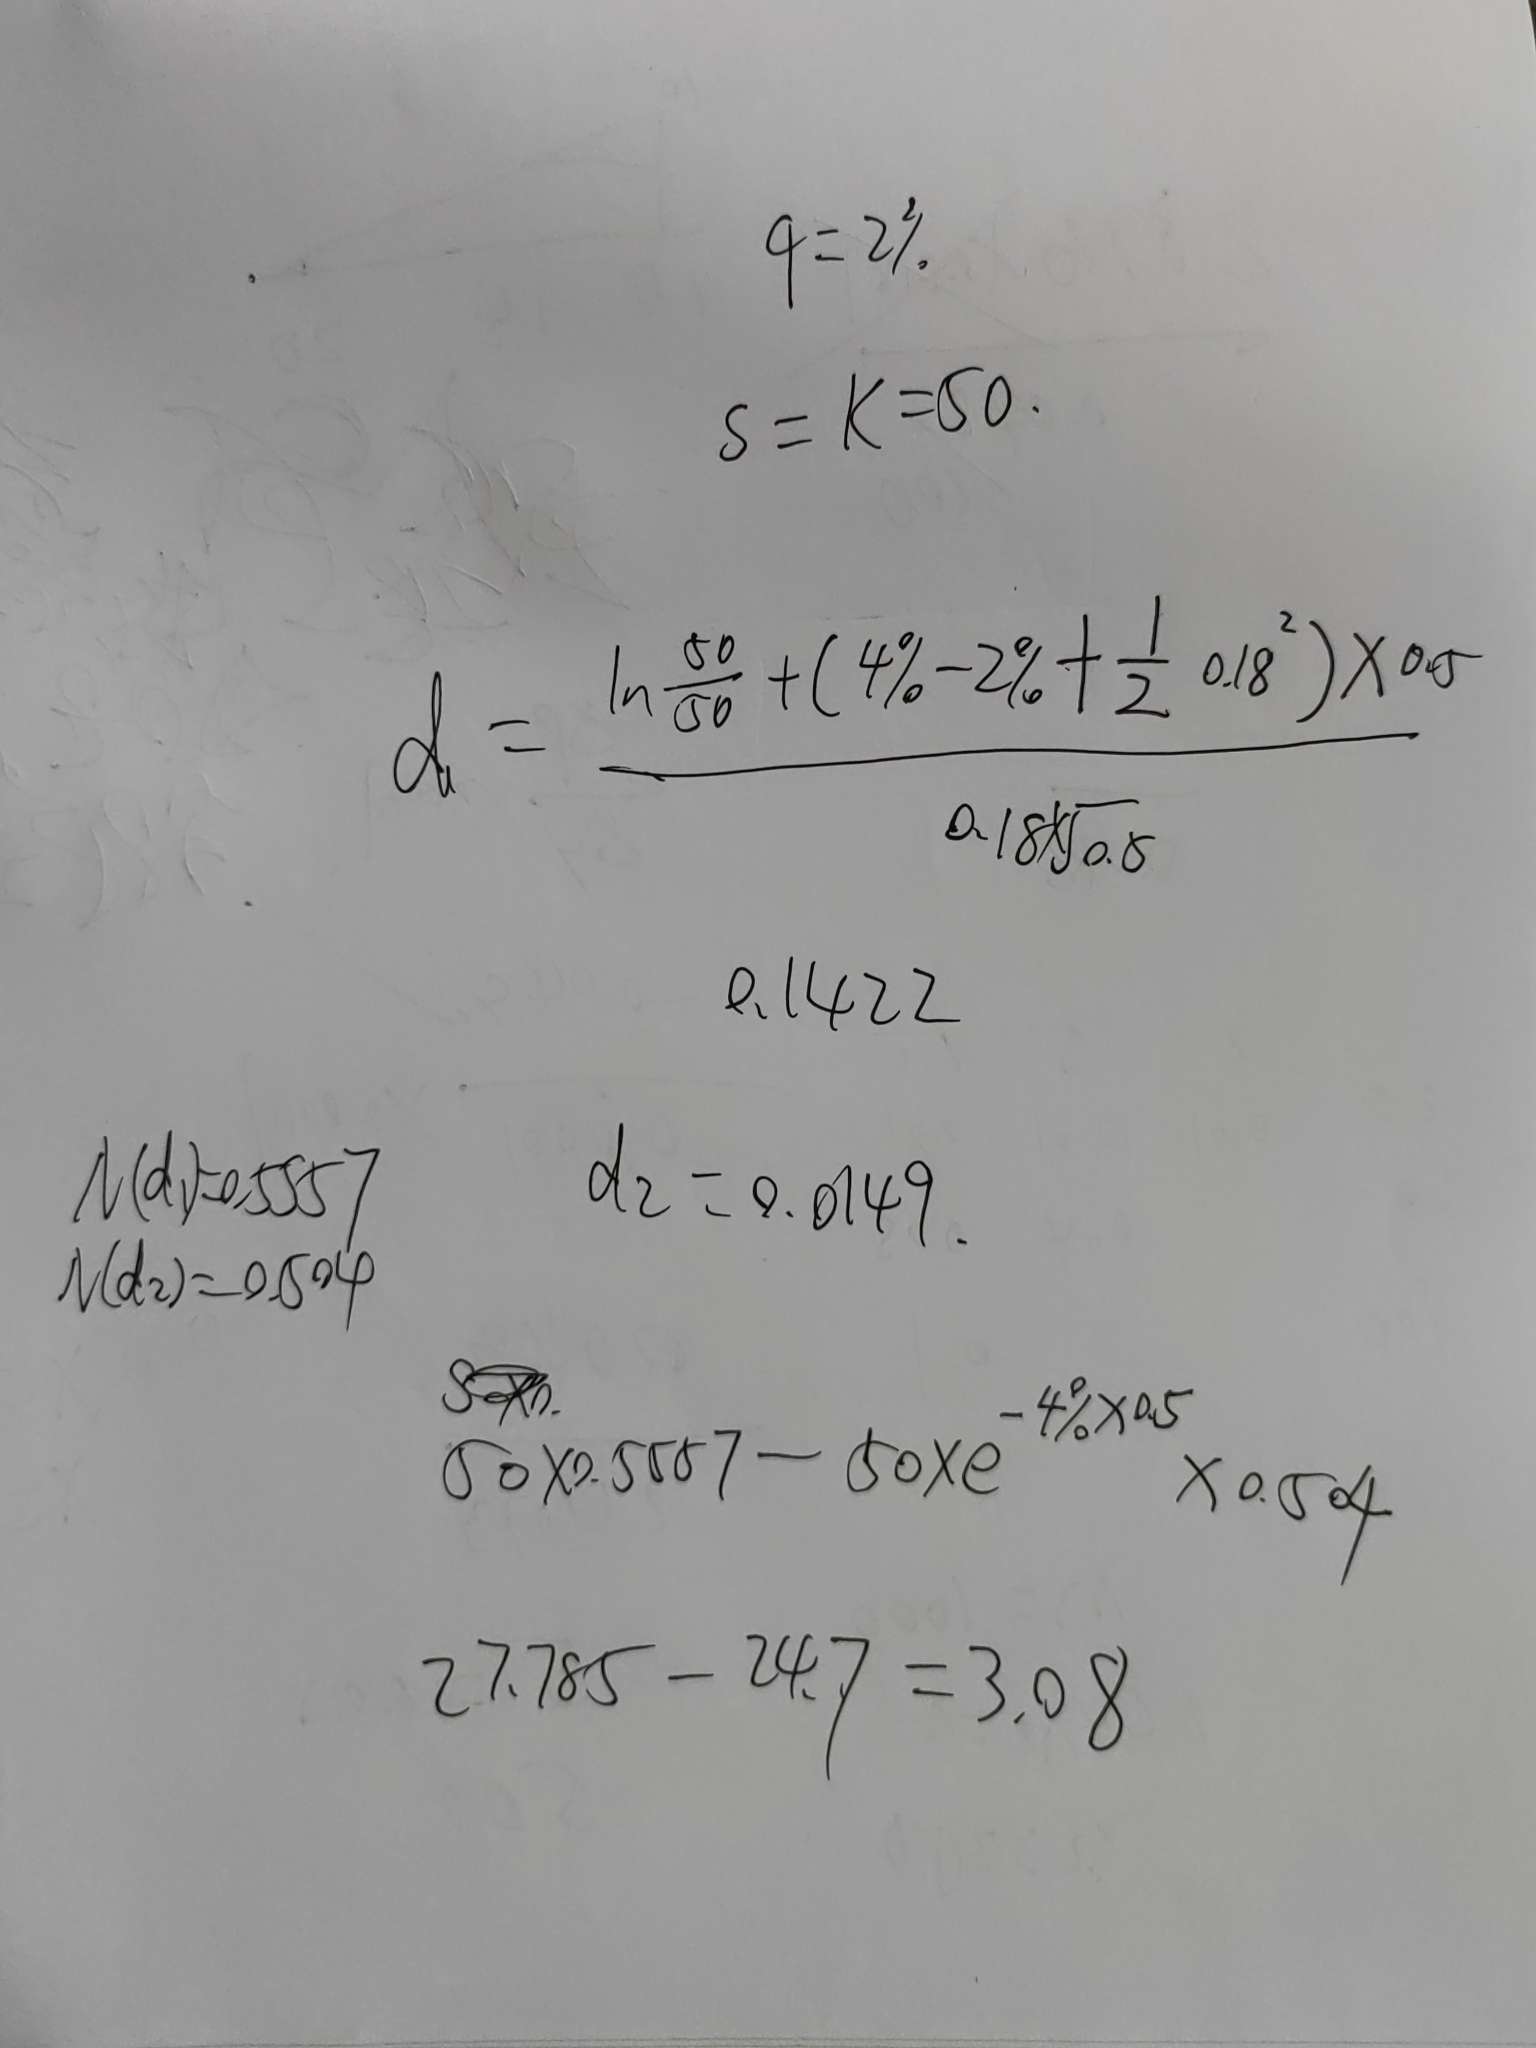 q=2%.
S=K=50.
d₁ = (ln 50/50 + (4%-2%+1/2 0.18²)×0.5) / (0.18×√0.5)
0.1422
N(d₁)=0.5557
d₂=0.0149.
N(d₂)=0.504
50×0.5557-50×e^(-4%×0.5)×0.504
27.785-24.7=3.08